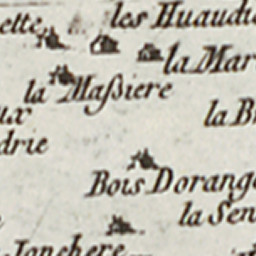 ette
les Huaudi
la Mar
la Maßiere
ux
la B
drie
Bois Dorang
la Sen
Jonchere